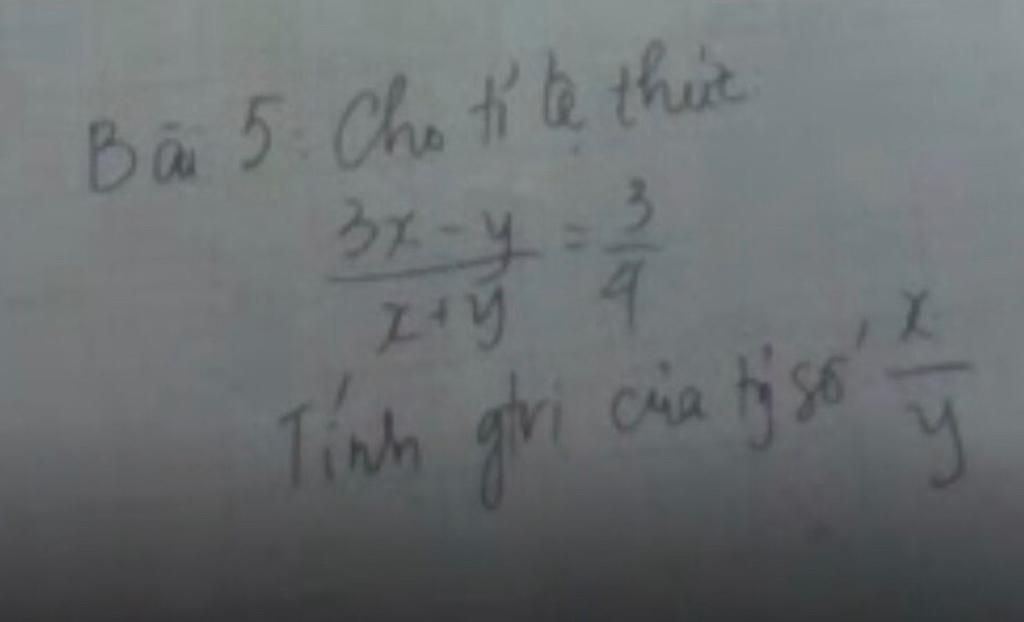 Bài 5: Cho tỉ lệ thức
3x - y / x + y = 3 / 4
Tính gtrị của tỷ số x / y